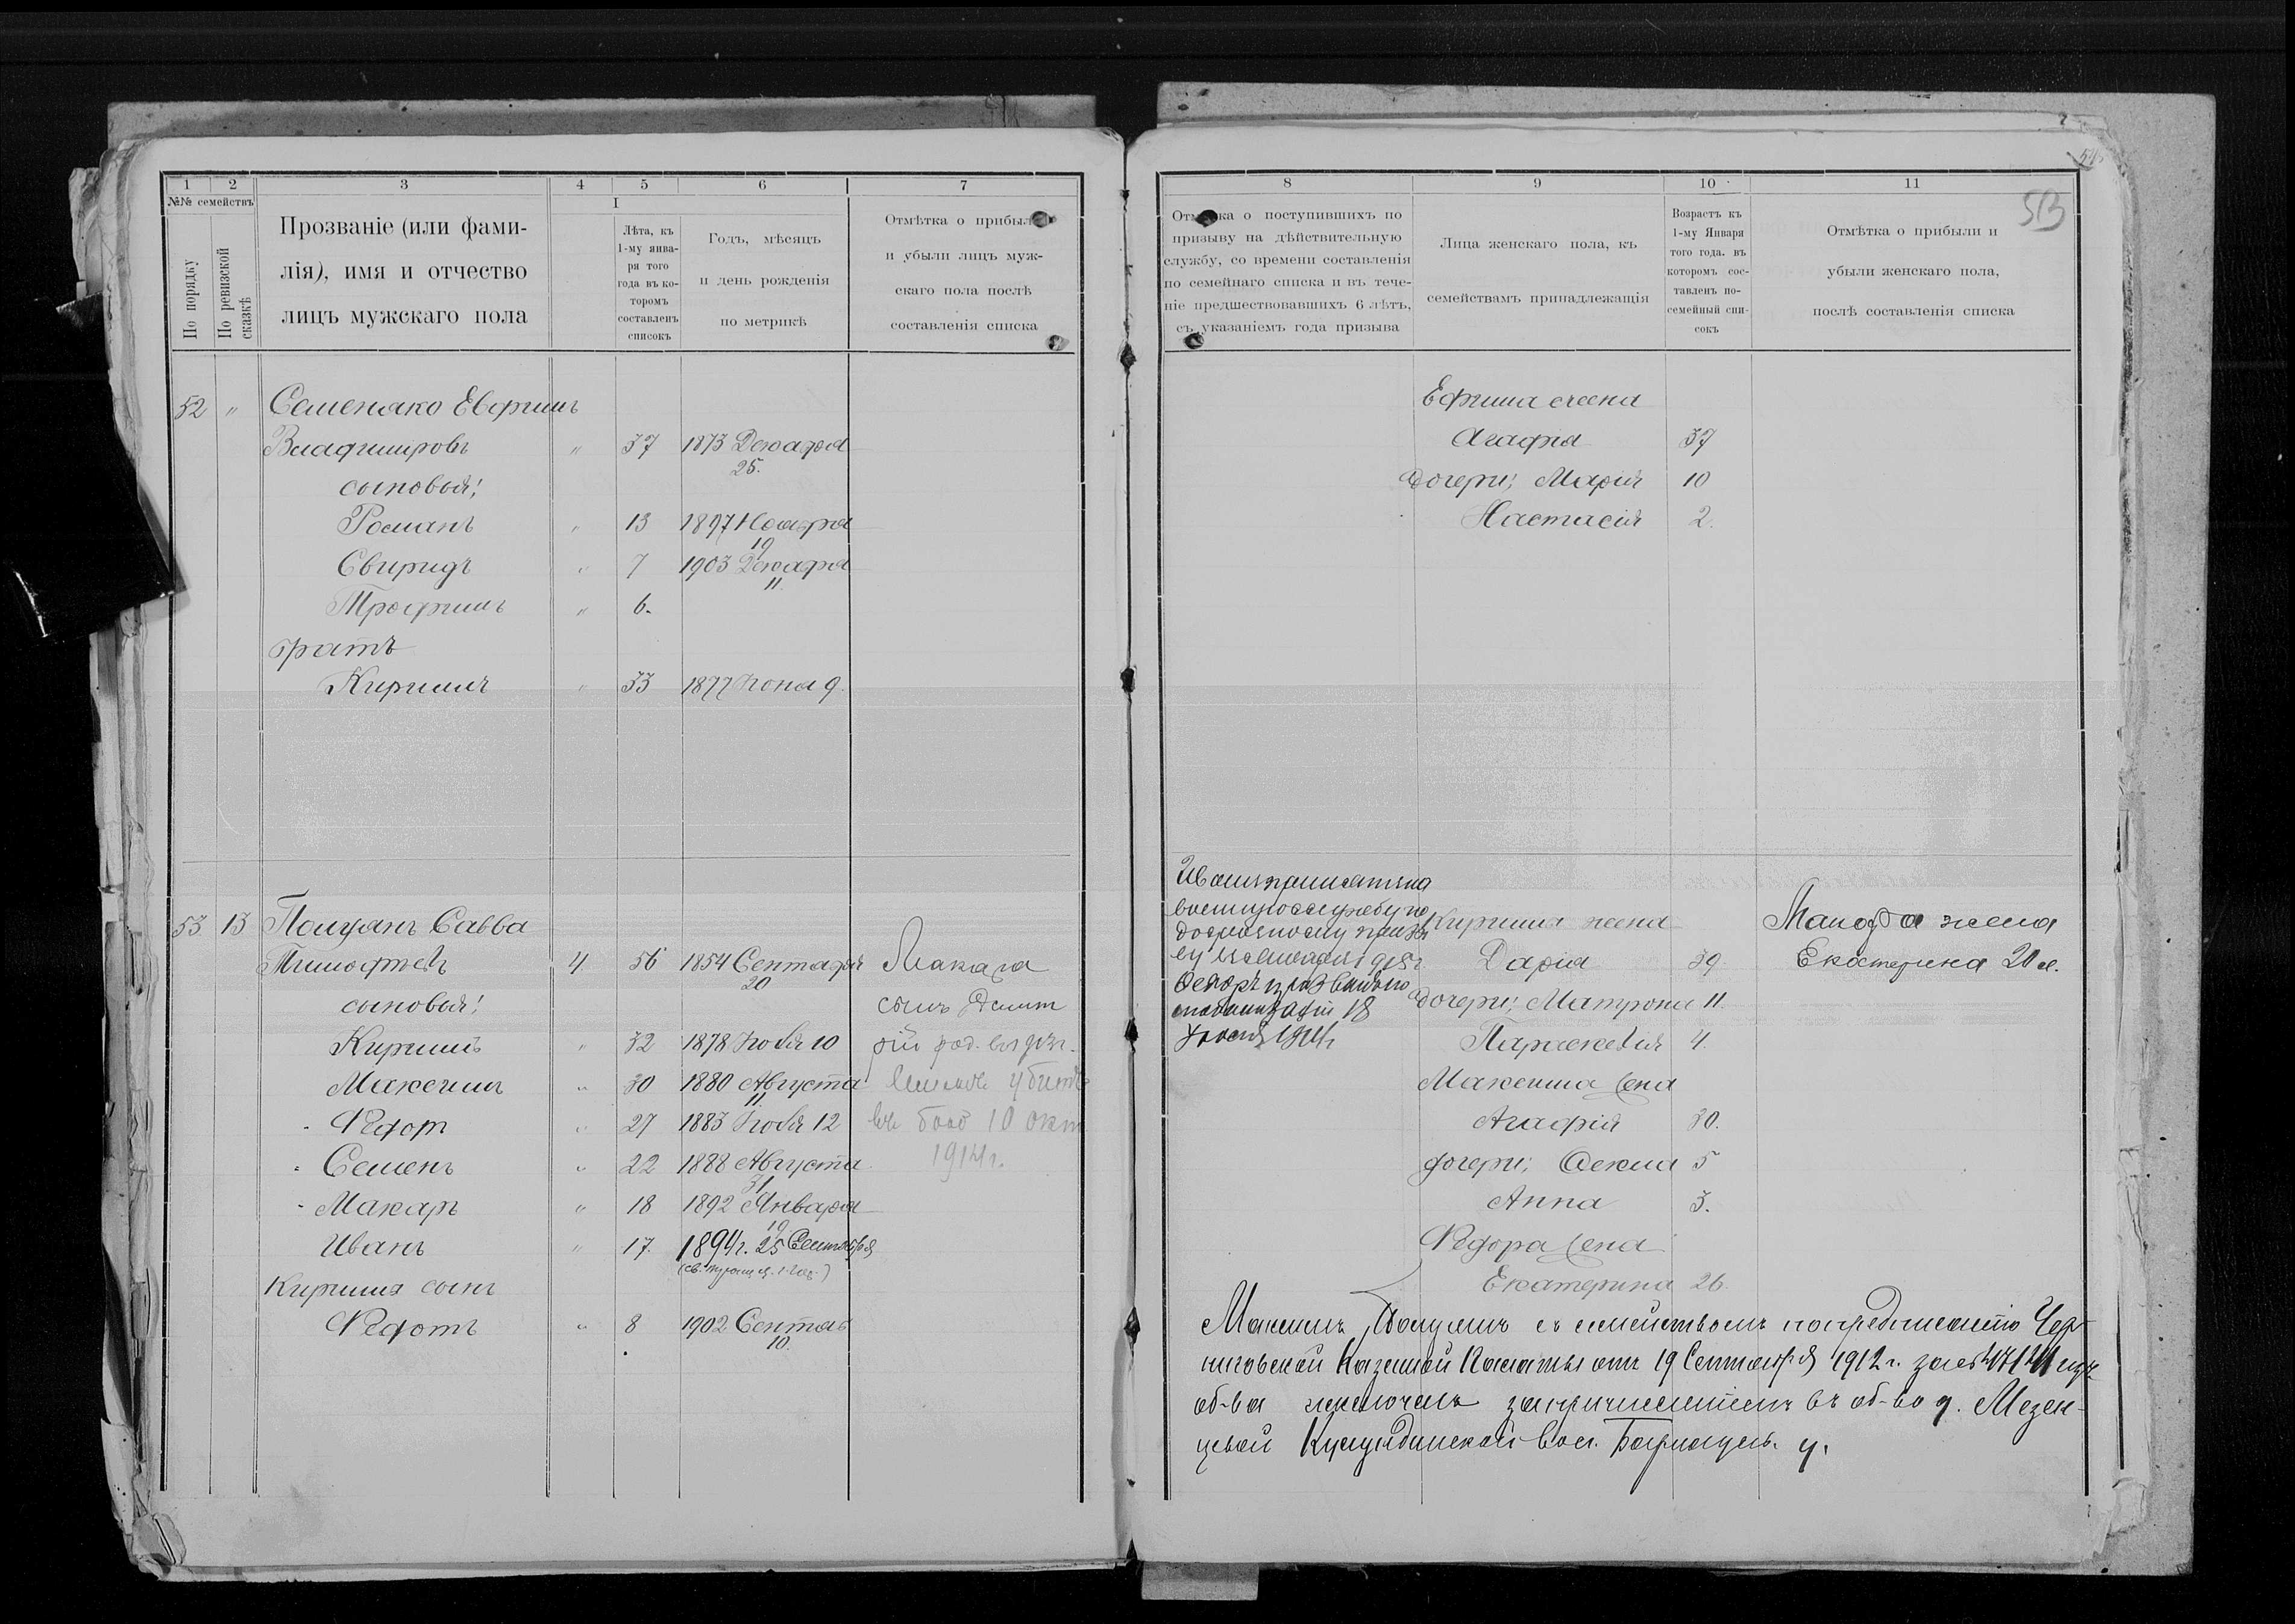 1 2 3 4 5 6 7
№№ семействъ
По порядку
По ревизской сказкѣ
Прозваніе (или фами-
лія), имя и отчество
лицъ мужскаго пола
I
Лѣта, къ
1-му янва-
ря того
года въ ко-
торомъ
составленъ
списокъ
Годъ, мѣсяцъ
и день рожденія
по метрикѣ
Отмѣтка о прибыли
и убыли лицъ муж-
скаго пола послѣ
составленія списка
52 " Семеняко Евфимъ
Владимировъ " 37 1873 Декабря
25.
сыновья:
Романъ " 13 1897 Ноября
19
Свиридъ " 7 1903 Декабря
11
Трофимъ " 6.
братъ
Кирилъ " 33 1877 Іюня 9.
53 13 Полуянъ Савва
Тимофѣевъ 4 56 1854 Сентября
20
сыновья:
Кирилъ " 32 1878 Іюля 10
Максимъ " 30 1880 Августа
11
Федоръ " 27 1883 Іюля 12
Семенъ " 22 1888 Августа
31
Макаръ " 18 1892 Января
19
Иванъ " 17. 1894г. 25 Сентября
Кирила сынъ
Федотъ " 8 1902 Сентяб
10.
Макара
сынъ Дмит
рій род.
убитъ
въ бою 10 окт
1914г.
8 9 10 11
513
Отмѣтка о поступившихъ по
призыву на дѣйствительную
службу, со времени составленія
по семейнаго списка и въ тече-
ніе предшествовавшихъ 6 лѣтъ,
съ указаніемъ года призыва
Лица женскаго пола, къ
семействамъ принадлежащія
Возрастъ къ
1-му Января
того года. въ
которомъ сос-
тавленъ по-
семейный спи-
сокъ
Отмѣтка о прибыли и
убыли женскаго пола,
послѣ составленія списка
Ефима жена
Агафія 37
дочери: Марія 10
Настасія 2.
Иванъ принятъ на
военную службу по
досрочному призы
ву 1915г
Федоръ призванъ по
мобилизаціи 18
Іюля 1914г
Кирила жена
Дарія 39
дочери: Матрона 11
Параскевія 4.
Максима жена
Агафія 30.
дочери: Фекла 5
Анна 3.
Федора жена
Екатерина 26
Макара жена
Екатерина 20 л.
Максимъ Полуянъ съ семействомъ по предписанію Чер-
ниговской Казенной Палаты отъ 19 Сентября 1912 г. за № изъ
об-ва исключенъ за причисленіемъ въ об-во д. Мезен-
цевой Кулундинской вол. Барнаульс. у.